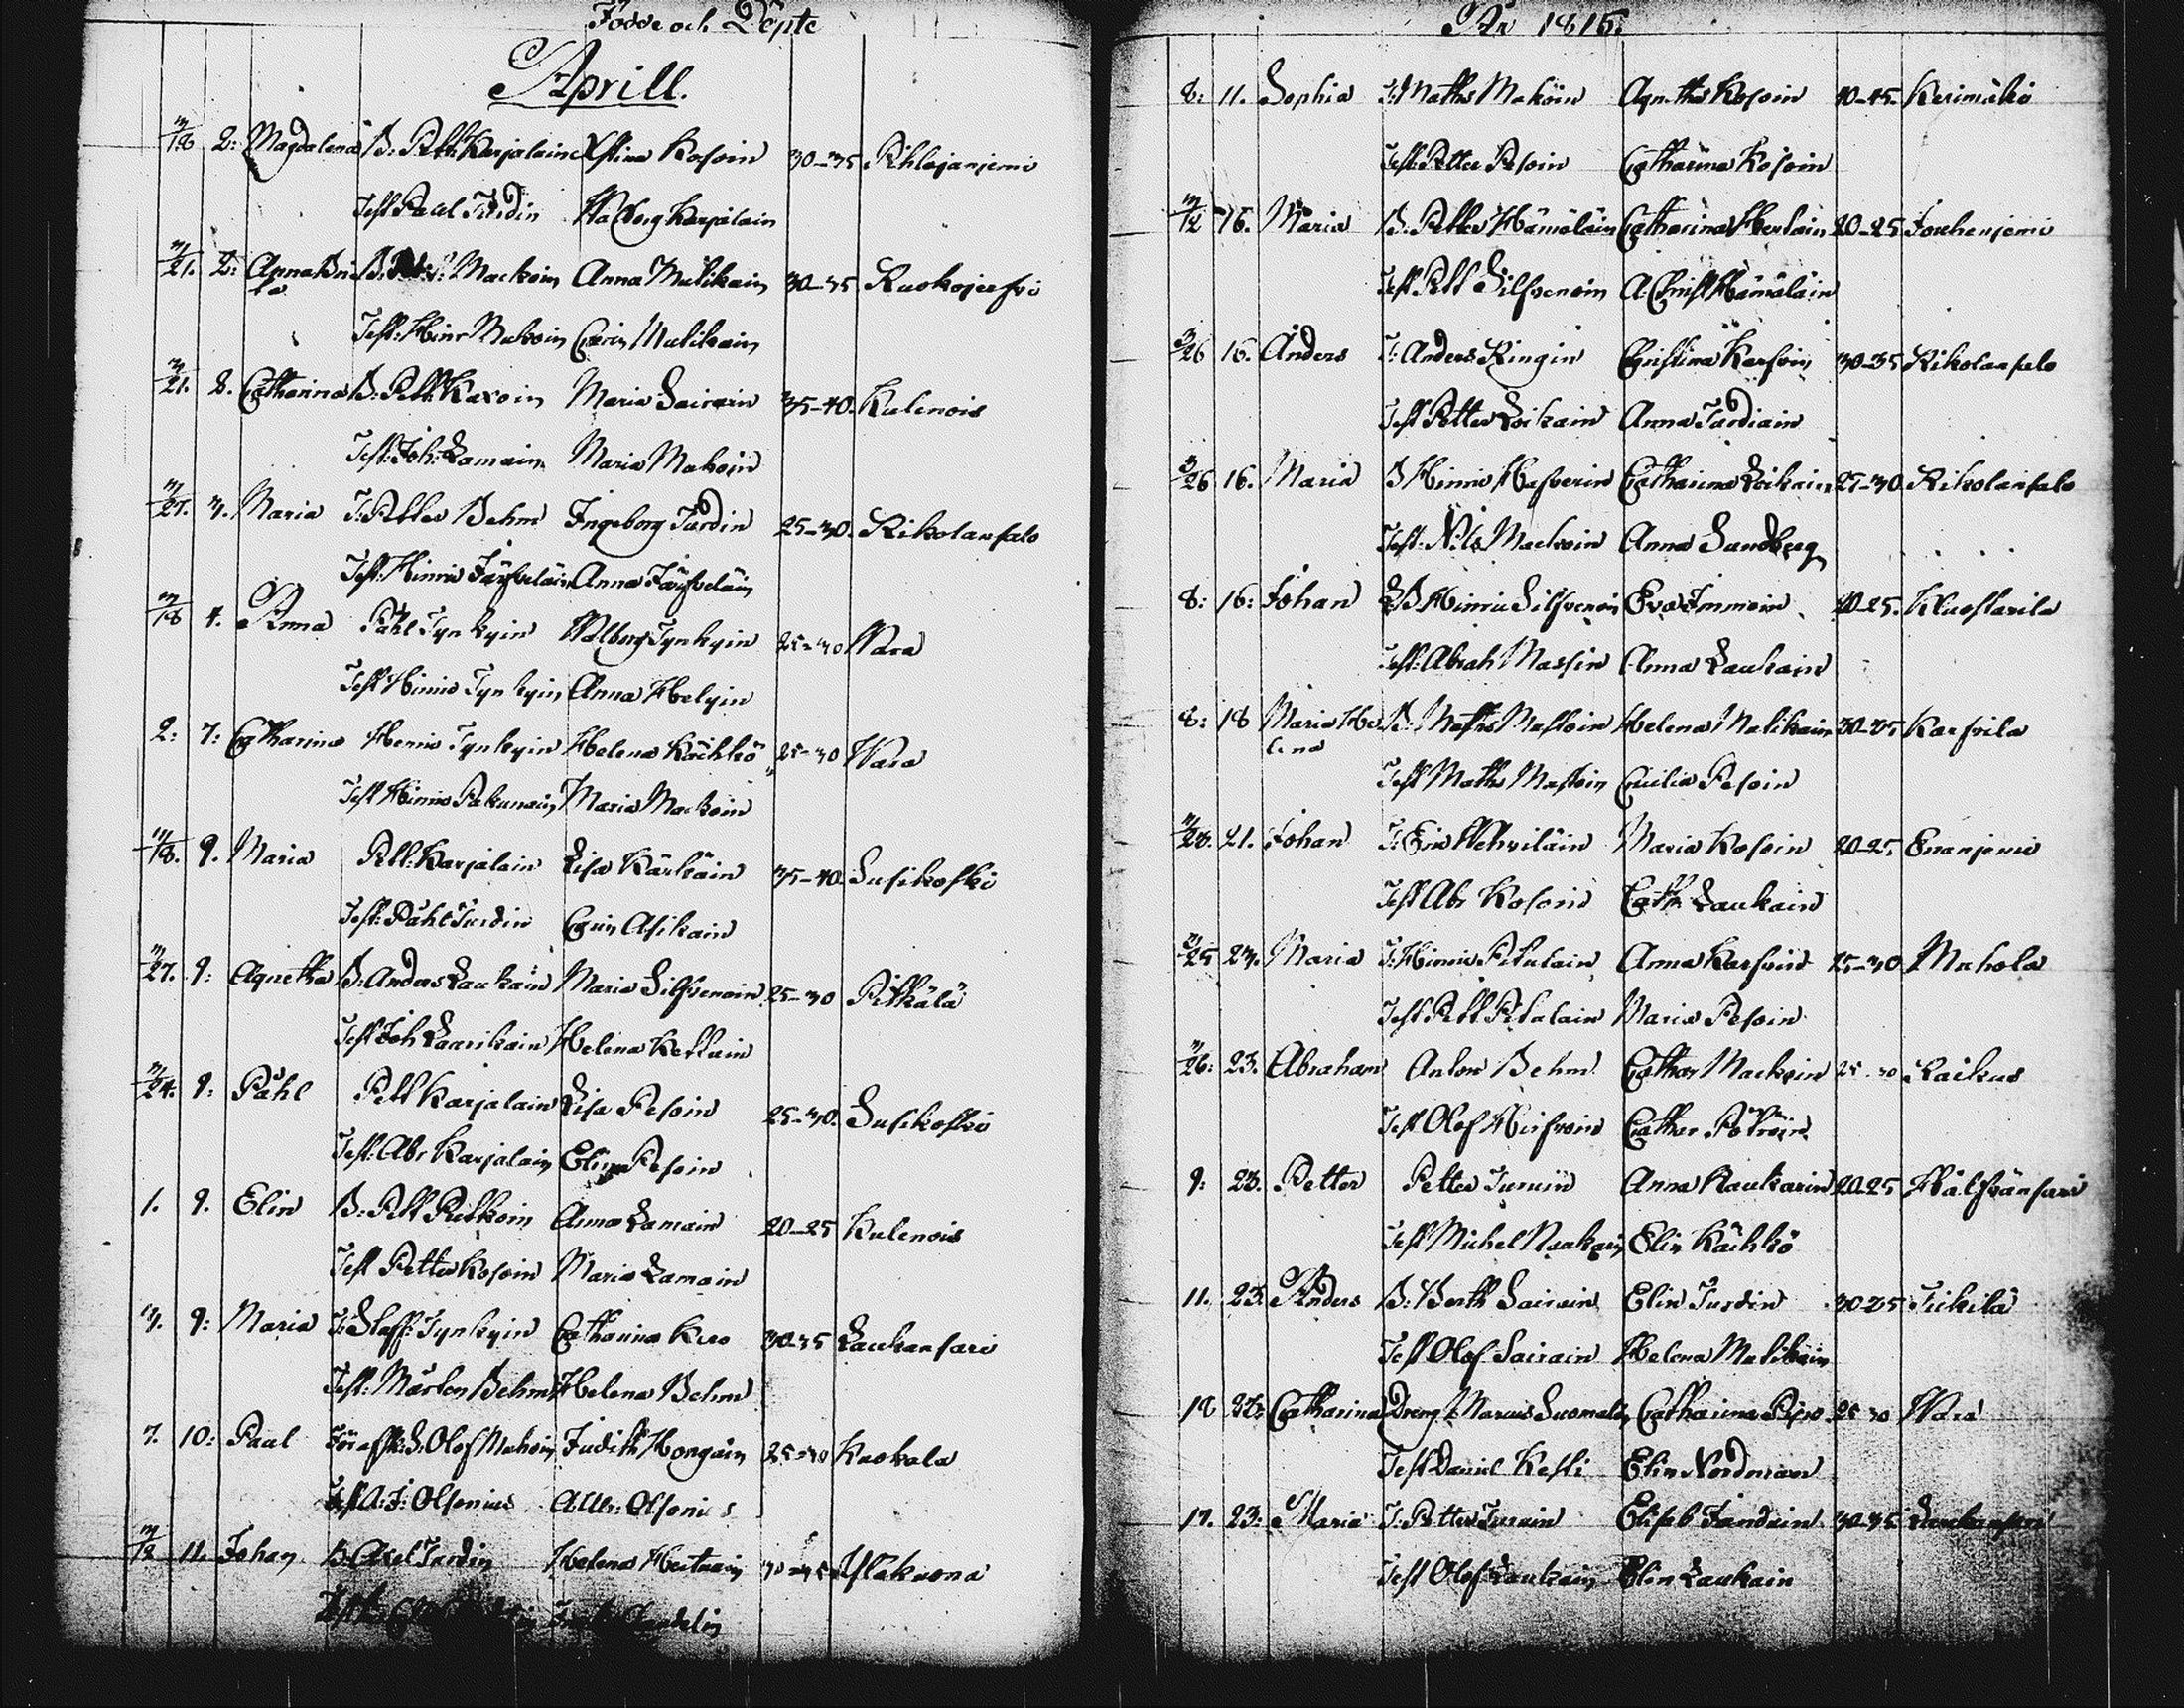 Födde och Döpte
Aprill.
3/18 2: Magdalena B. Pett. Karjalain Stina Kosoin 30-35 Ihlajanjemi
Test Paul Turdin Walborg Karjalain
3/21. 2: Anna Bri B. Mackoin Anna Mulikain 30-35 Ruokojerfvi
ta
Test: Hinr Makoin Carin Mulikain
3/21. 8. Catharina B: Pett: Kaxoin Maria Sairain 35-40. Kulenois
Test: Joh: Lamain Maria Makoin
3/27. 3. Maria T: Petter Behm Ingeborg Turdin 25-30. Rikolansalo
Test: Hinric Järfveläin Anna Järfveläin
3/18 4. Anna Påhl Tynkyin Walborg Tynkyin 25-30 Wara
Test Hinric Tynkyin Anna Helyin
2: 7: Catharina Henric Tynkyin Helena Käihkö 25-30 Wara
Test Hinric Pakunain Maria Mackoin
3/18. 9. Maria Pett: Karjalain Lisa Kärkäin 35-40. Susikoski
Test: Påhl Turdin Carin Asikain
3/27. 9: Agnetha B: Anders Laukain Maria Silfvenoin 25-30 Pitkälä
Test Joh Laarikain Helena Kettuin
3/24. 9: Påhl Pett Karjalain Lisa Pesoin 25-30. Susikoski
Test: Abr Karjalain Elin Pesoin
1. 9. Elin B: Pett Putkoin Anna Lamain 20-25 Kulenois
Test Petter Kosoin Maria Lamain
3. 9: Maria T: Staff: Tynkyin Catharina Kiro 30-35 Laukansari
Test: Mårten Behm Helena Behm
7. 10: Paul Olof Makoin Judith Hongain 25-30 Kaokala
Test A: J: Olsonius Olsonius
3/12 11. Johan B: Axel Turdin Helena 
År 1815.
8: 11. Sophia T: Maths Makoin Agnetha Kosoin 40-45. Kerimäki
Test: Petter Pesoin Catharina Kosoin
3/12 16. Maria B. Petter Hämäläin Catharina 20-25 Jouhenjemi
Test Pett Silfvenoin A: Christ Hämäläin
3/26 16. Anders T: Anders Ringin Christina Karfvin 30-35 Rikolansalo
Test Petter Loikain Anna Tardiain
3/26 16. Maria B Hinric Hasverin Catharina Loikain 25-30. Rikolansalo
Test: Nils Mackoin Anna Sandberg
8: 16: Johan B Hinric Silfvenoin Eva Immoin 
Test: Abrah Massin Anna Laukain
8: 18 Maria He B: Maths Mastoin Helena Malikain Karfvila
lena
Test Maths Mastoin Cicilia Pesoin
3/28. 21. Johan T: Eric Wehviläin Maria Kosoin 20-25 Enanjemi
Test Abr Kosoin Cath Laukain
3/25 23. Maria T: Hinric Pitulain Anna Karfvin 25-30 Muhola
Test Pett Pitulain Maria Pesoin
3/26: 23. Abraham Anton Behm Cathar Mackoin 25-30 Raikus
Test Olof Hirfvoin Cathar Pöyröin
9: 23. Petter Petter Turuin Anna Raukarin 20-25
Test Michel Elin Käihkö
11. 23. Anders B: Berth Sairain Elin Turdin 30-35 Tuikila
Test Olof Sairain Helena Mulikain
18 Catharina Dreng Marcus Suomalain Catharina 25-30 Wara
Test Daniel Kesti Elin Nordman
17. 23: Maria T: Petter Turuin Elisab Jandain 30-35 Laukansari
Test Olof Laukain Elin Laukain